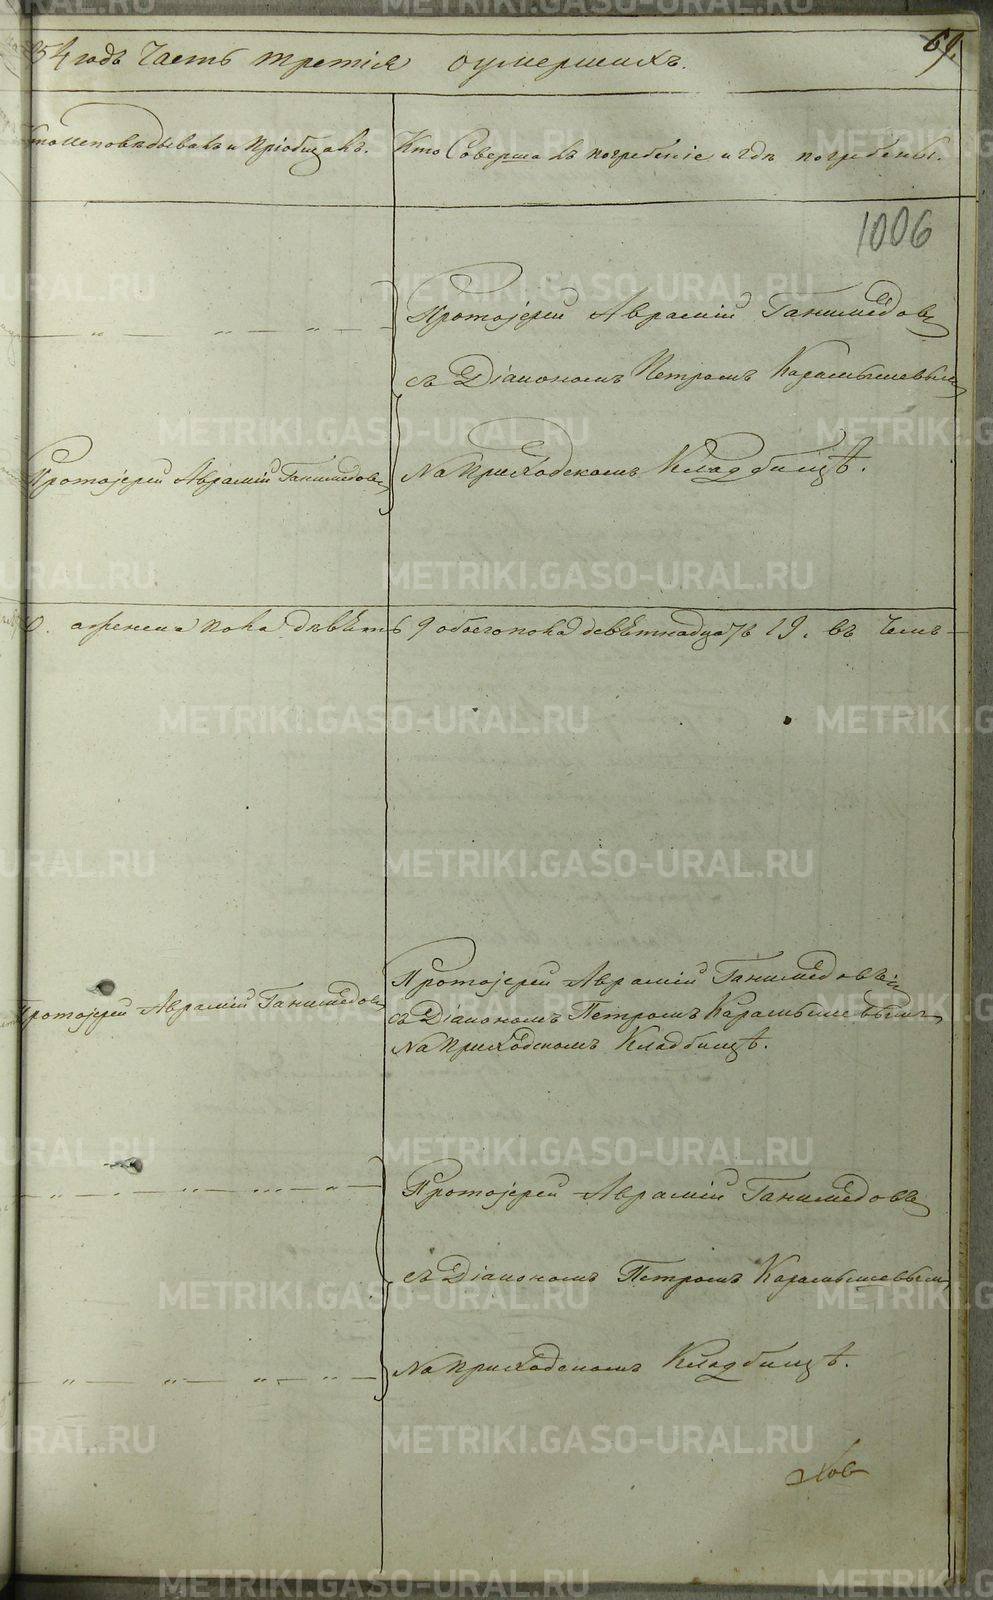 69.
54 годъ Часть третія оумершихъ.
Кто исповѣдывалъ и пріобщалъ.
Кто Совершалъ погребеніе и гдѣ погребены.
1006
Протоіерей Аврамій Ганимедовъ
съ Діакономъ Петромъ Карамышевымъ
Протоіерей Аврамій Ганимедовъ
На Приходскомъ Кладбищѣ.
а женска пола дѣвѣть 9 обоего пола девѣтнадцать 19. въ чемъ
Протоіерей Аврамій Ганимедовъ
Протоіерей Аврамій Ганимедовъ
съ Діакономъ Петромъ Карамышевымъ
На Приходскомъ Кладбищѣ.
Протоіерей Аврамій Ганимедовъ
съ Діакономъ Петромъ Карамышевымъ
На Приходскомъ Кладбищѣ.
METRIKI.GASO-URAL.RU